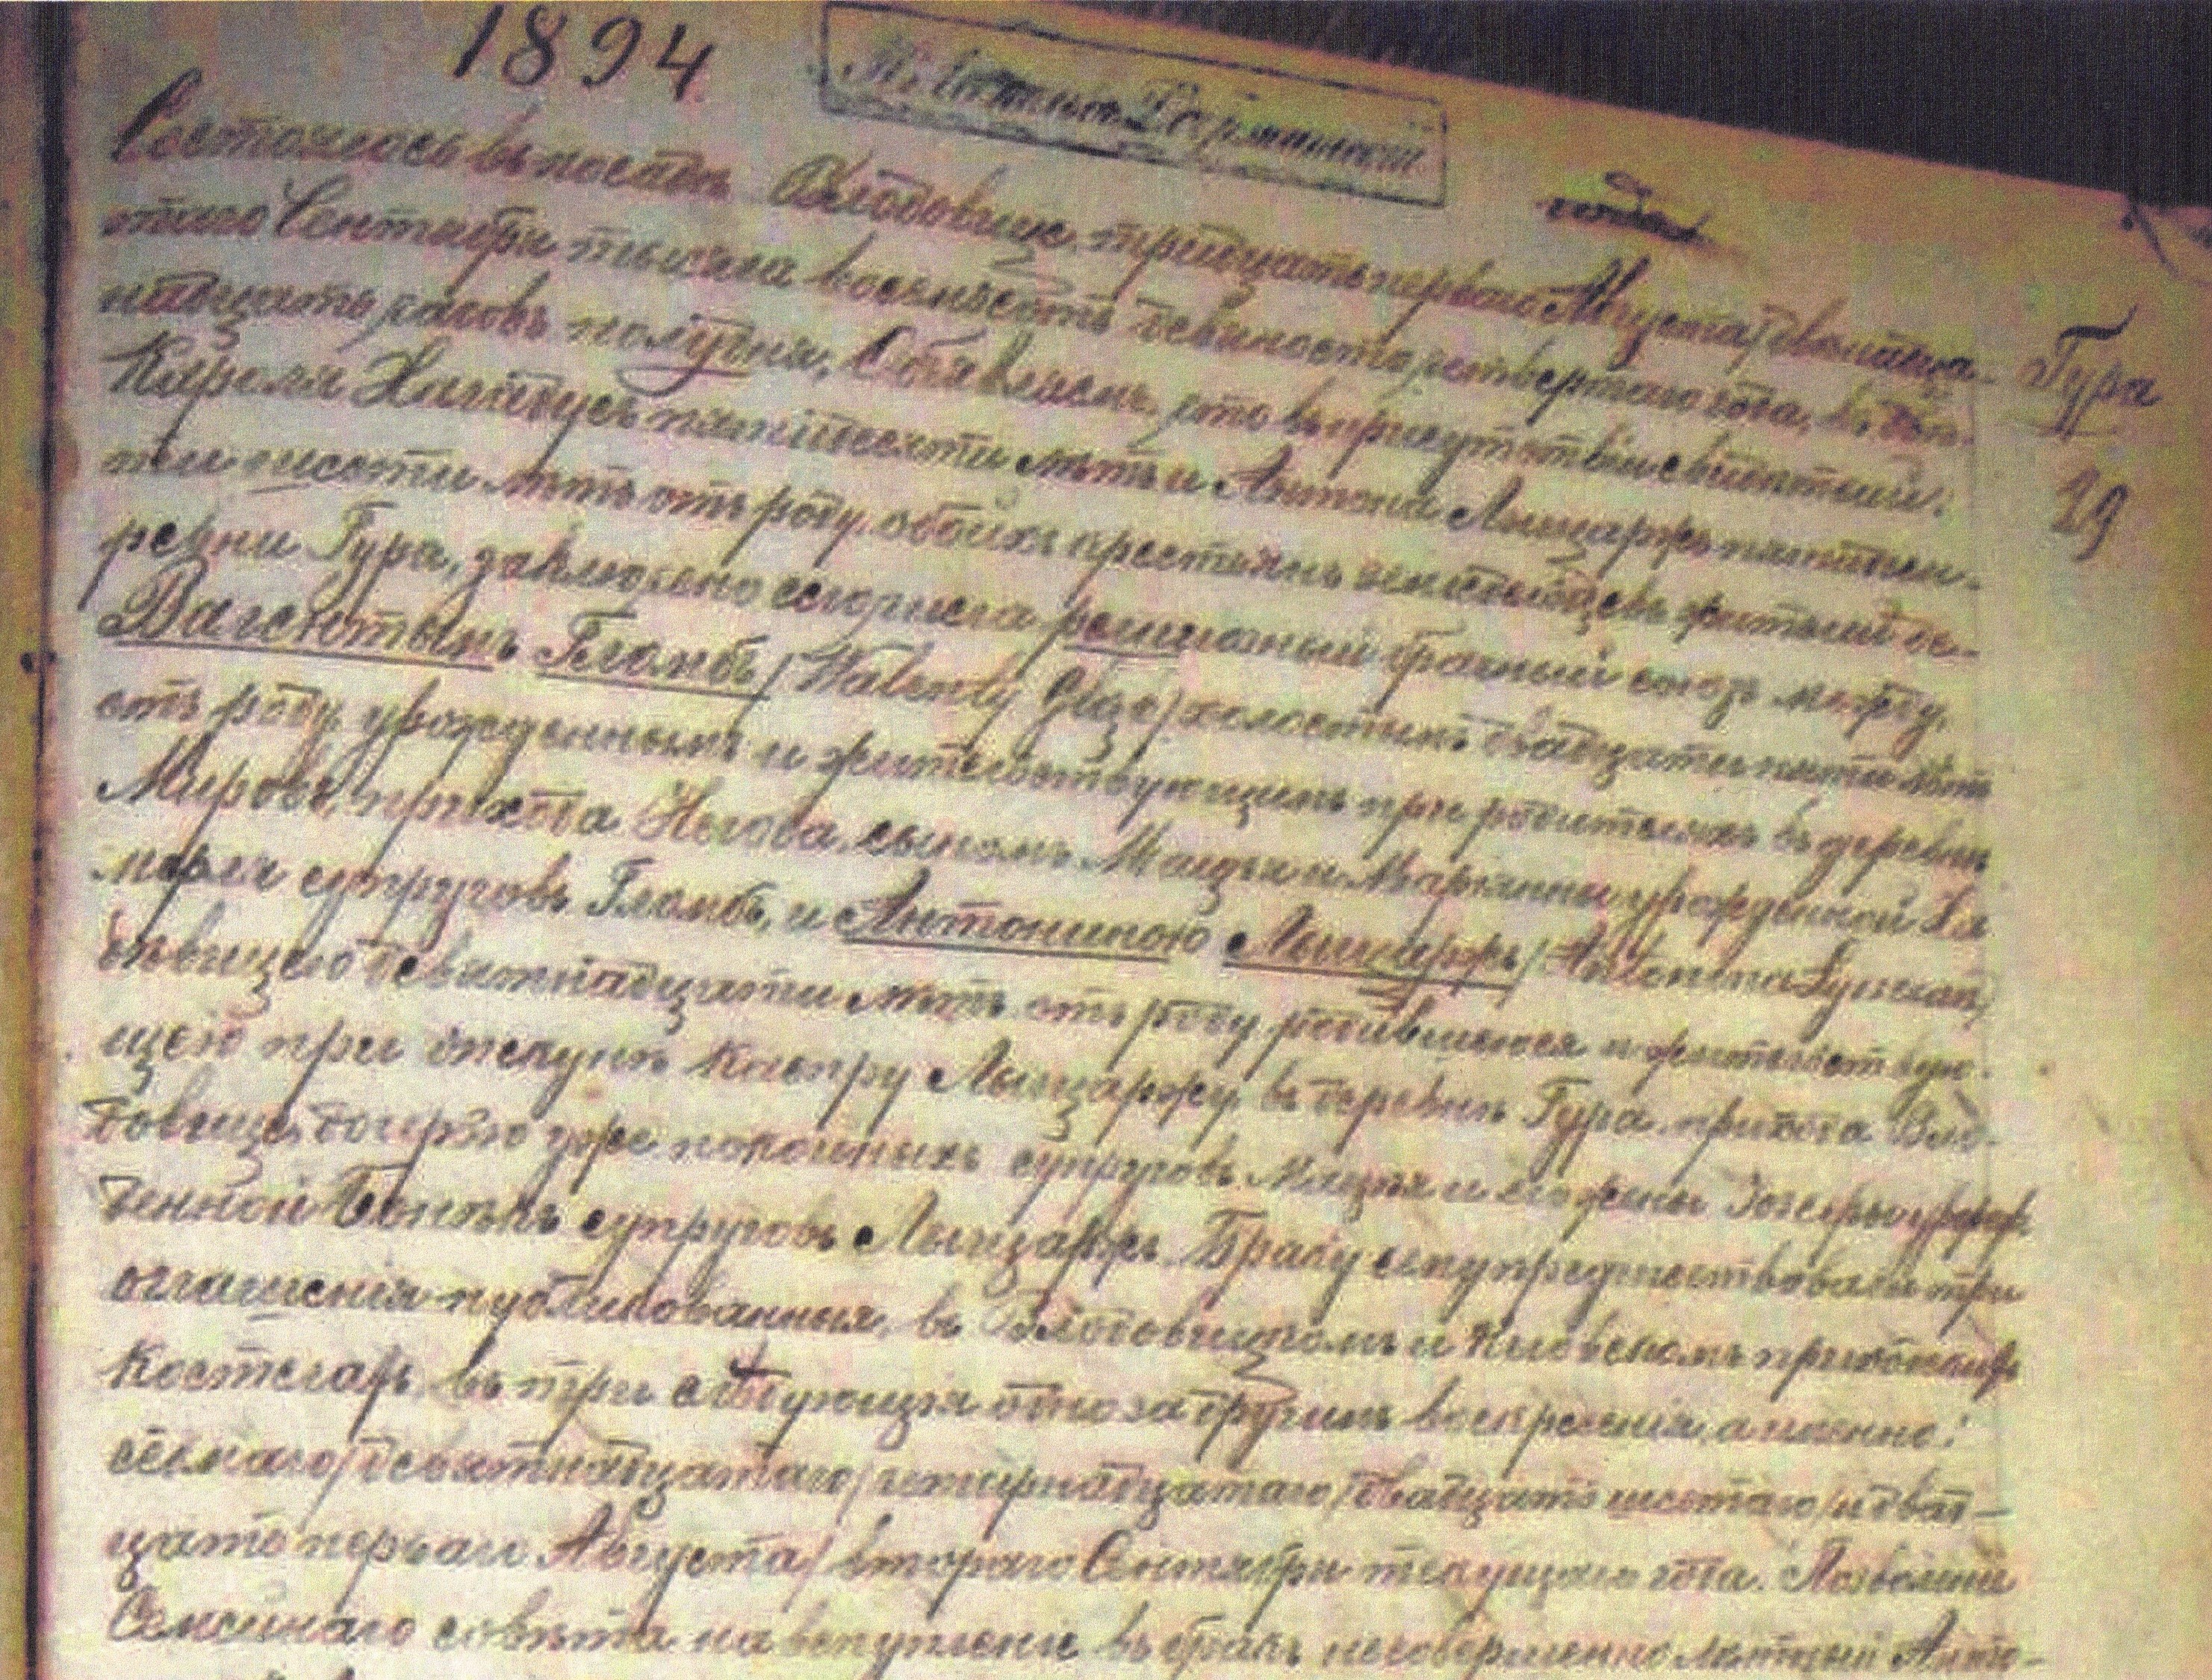 1894
года
Гура
29
Состоялось въ посадѣ Влодовице тридцать перваго Августа /двѣнадца-
таго Сентября тысяча восемьсотъ девяносто четвертаго года, въ две-
надцать часовъ полудня. Объявляемъ, что въ присутствіи свидѣтелей:
Кароля пятидесяти лѣтъ и Антона Лыщаржъ пятиде-
ти шести лѣтъ отъ роду, обоихъ крестьянъ земледѣльцевъ жителей де-
ревни Гура, заключено сего числа религіозный брачный союзъ между
Валентымъ Гломбъ /Walenty Głąb/ холостымъ двадцати пяти лѣтъ
отъ роду урожденнымъ и жительствующимъ при родителяхъ въ деревнѣ
Мировѣ, прихода Негова, сыномъ и Маріанны урожденной
супруговъ Гломбъ, и Антониною Лыщаржъ /Antonina
девицею девятнадцати лѣтъ отъ роду родившеюся и жительствую-
щею при опекунѣ Каспру Лыщаржу въ деревнѣ Гура прихода Вло-
довице, дочерью уже покойныхъ супруговъ и его жены урож-
денной супруговъ Лыщаржъ. Браку сему предшествовали три
оглашенія публикованныя, въ Влодовицкомъ и приходскихъ
костелахъ въ три слѣдующія одно за другимъ воскресенія, а именно:
седмаго /девятнадцатаго/ четырнадцатаго /двадцать шестаго/ и двад-
цать перваго Августа / втораго Сентября текущаго года. Позволеніе
Семейнаго совѣта на вступленіе въ бракъ несовершеннолѣтней Анто-